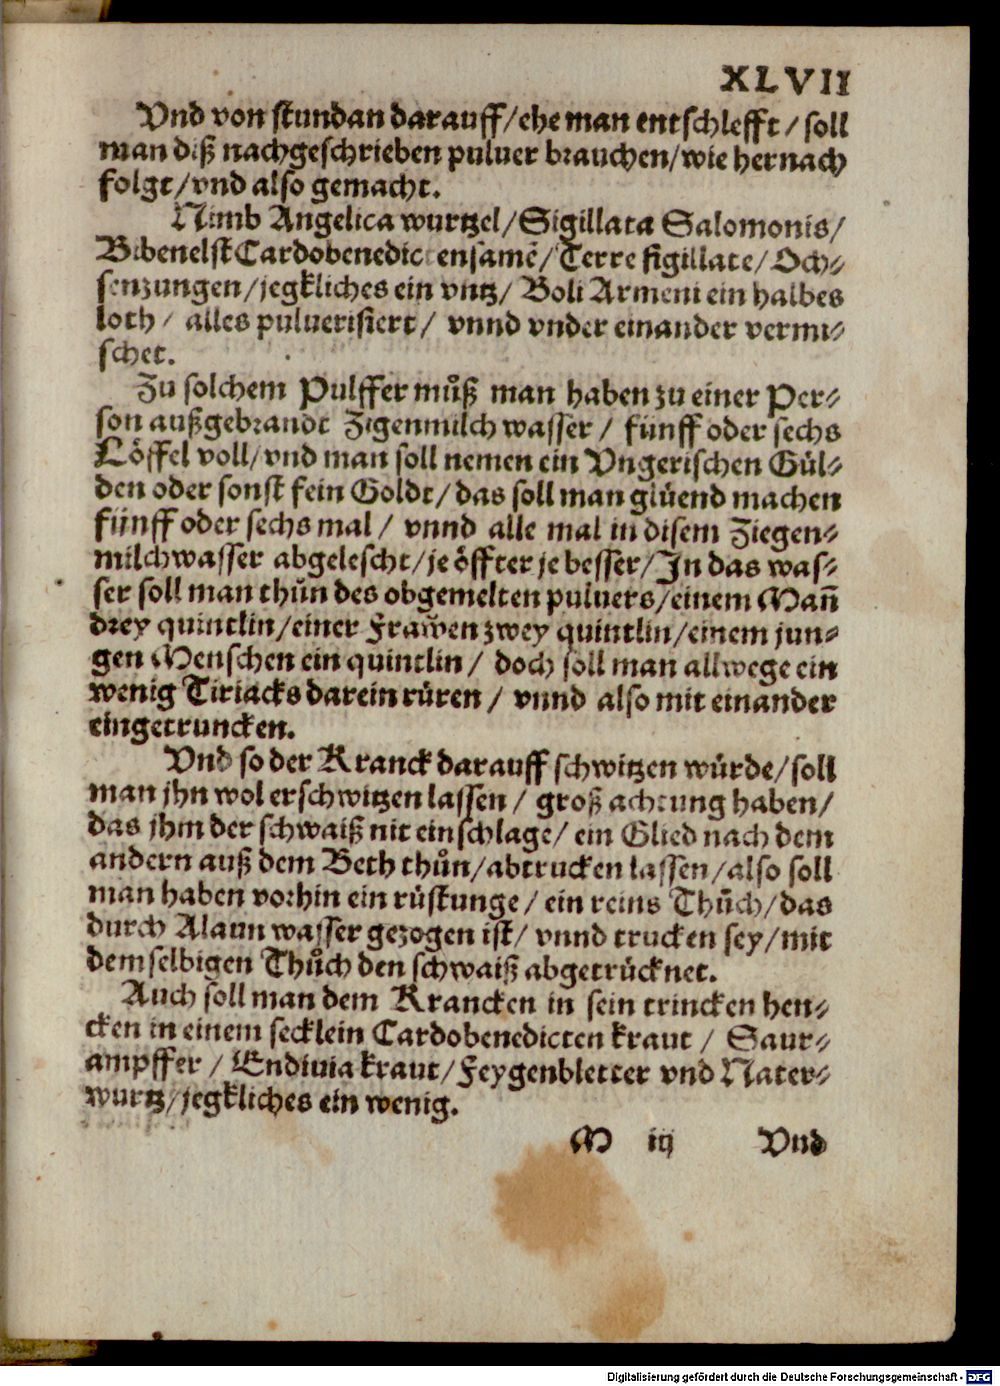 XLVII
Vnd von stundan darauff/ehe man entschlefft/ soll
man diß nachgeschrieben puluer brauchen/wie hernach
folgt/vnd also gemacht.
Nimb Angelica wurtzel/Sigillata Salomonis/
Bibenelst Cardobenedictensamẽ/Terre sigillate/Och⸗
senzungen/jegkliches ein vntz/ Boli Armeni ein halbes
loth/ alles puluerisiert/ vnnd vnder einander vermi⸗
schet.
Zu solchem Pulffer můß man haben zu einer Per⸗
son außgebrandt Zigenmilch wasser/ fünff oder sechs
Löffel voll/vnd man soll nemen ein Vngerischen Gül⸗
den oder sonst fein Goldt/das soll man glüend machen
fünff oder sechs mal/ vnnd alle mal in disem Ziegen⸗
milchwasser abgelescht/je öffter je besser/In das was⸗
ser soll man thůn des obgemelten puluers/einem Mañ
drey quintlin/einer Frawen zwey quintlin/einem jun⸗
gen Menschen ein quintlin/ doch soll man allwege ein
wenig Tiriacks darein rüren/ vnnd also mit einander
eingetruncken.
Vnd so der Kranck darauff schwitzen würde/soll
man jhn wol erschwitzen lassen/ groß achtung haben/
das jhm der schwaiß nit einschlage/ ein Glied nach dem
andern auß dem Beth thůn/abtrucken lassen/also soll
man haben vorhin ein rüstunge/ ein reins Thůch/das
durch Alaun wasser gezogen ist/ vnnd trucken sey/mit
demselbigen Thůch den schwaiß abgetrücknet.
Auch soll man dem Krancken in sein trincken hen⸗
cken in einem secklein Cardobenedicten kraut/ Saur⸗
ampffer/ Endiuia kraut/Feygenbletter vnd Nater⸗
wurtz/jegkliches ein wenig.
M iij Vnd
Digitalisierung gefördert durch die Deutsche Forschungsgemeinschaft - DFG